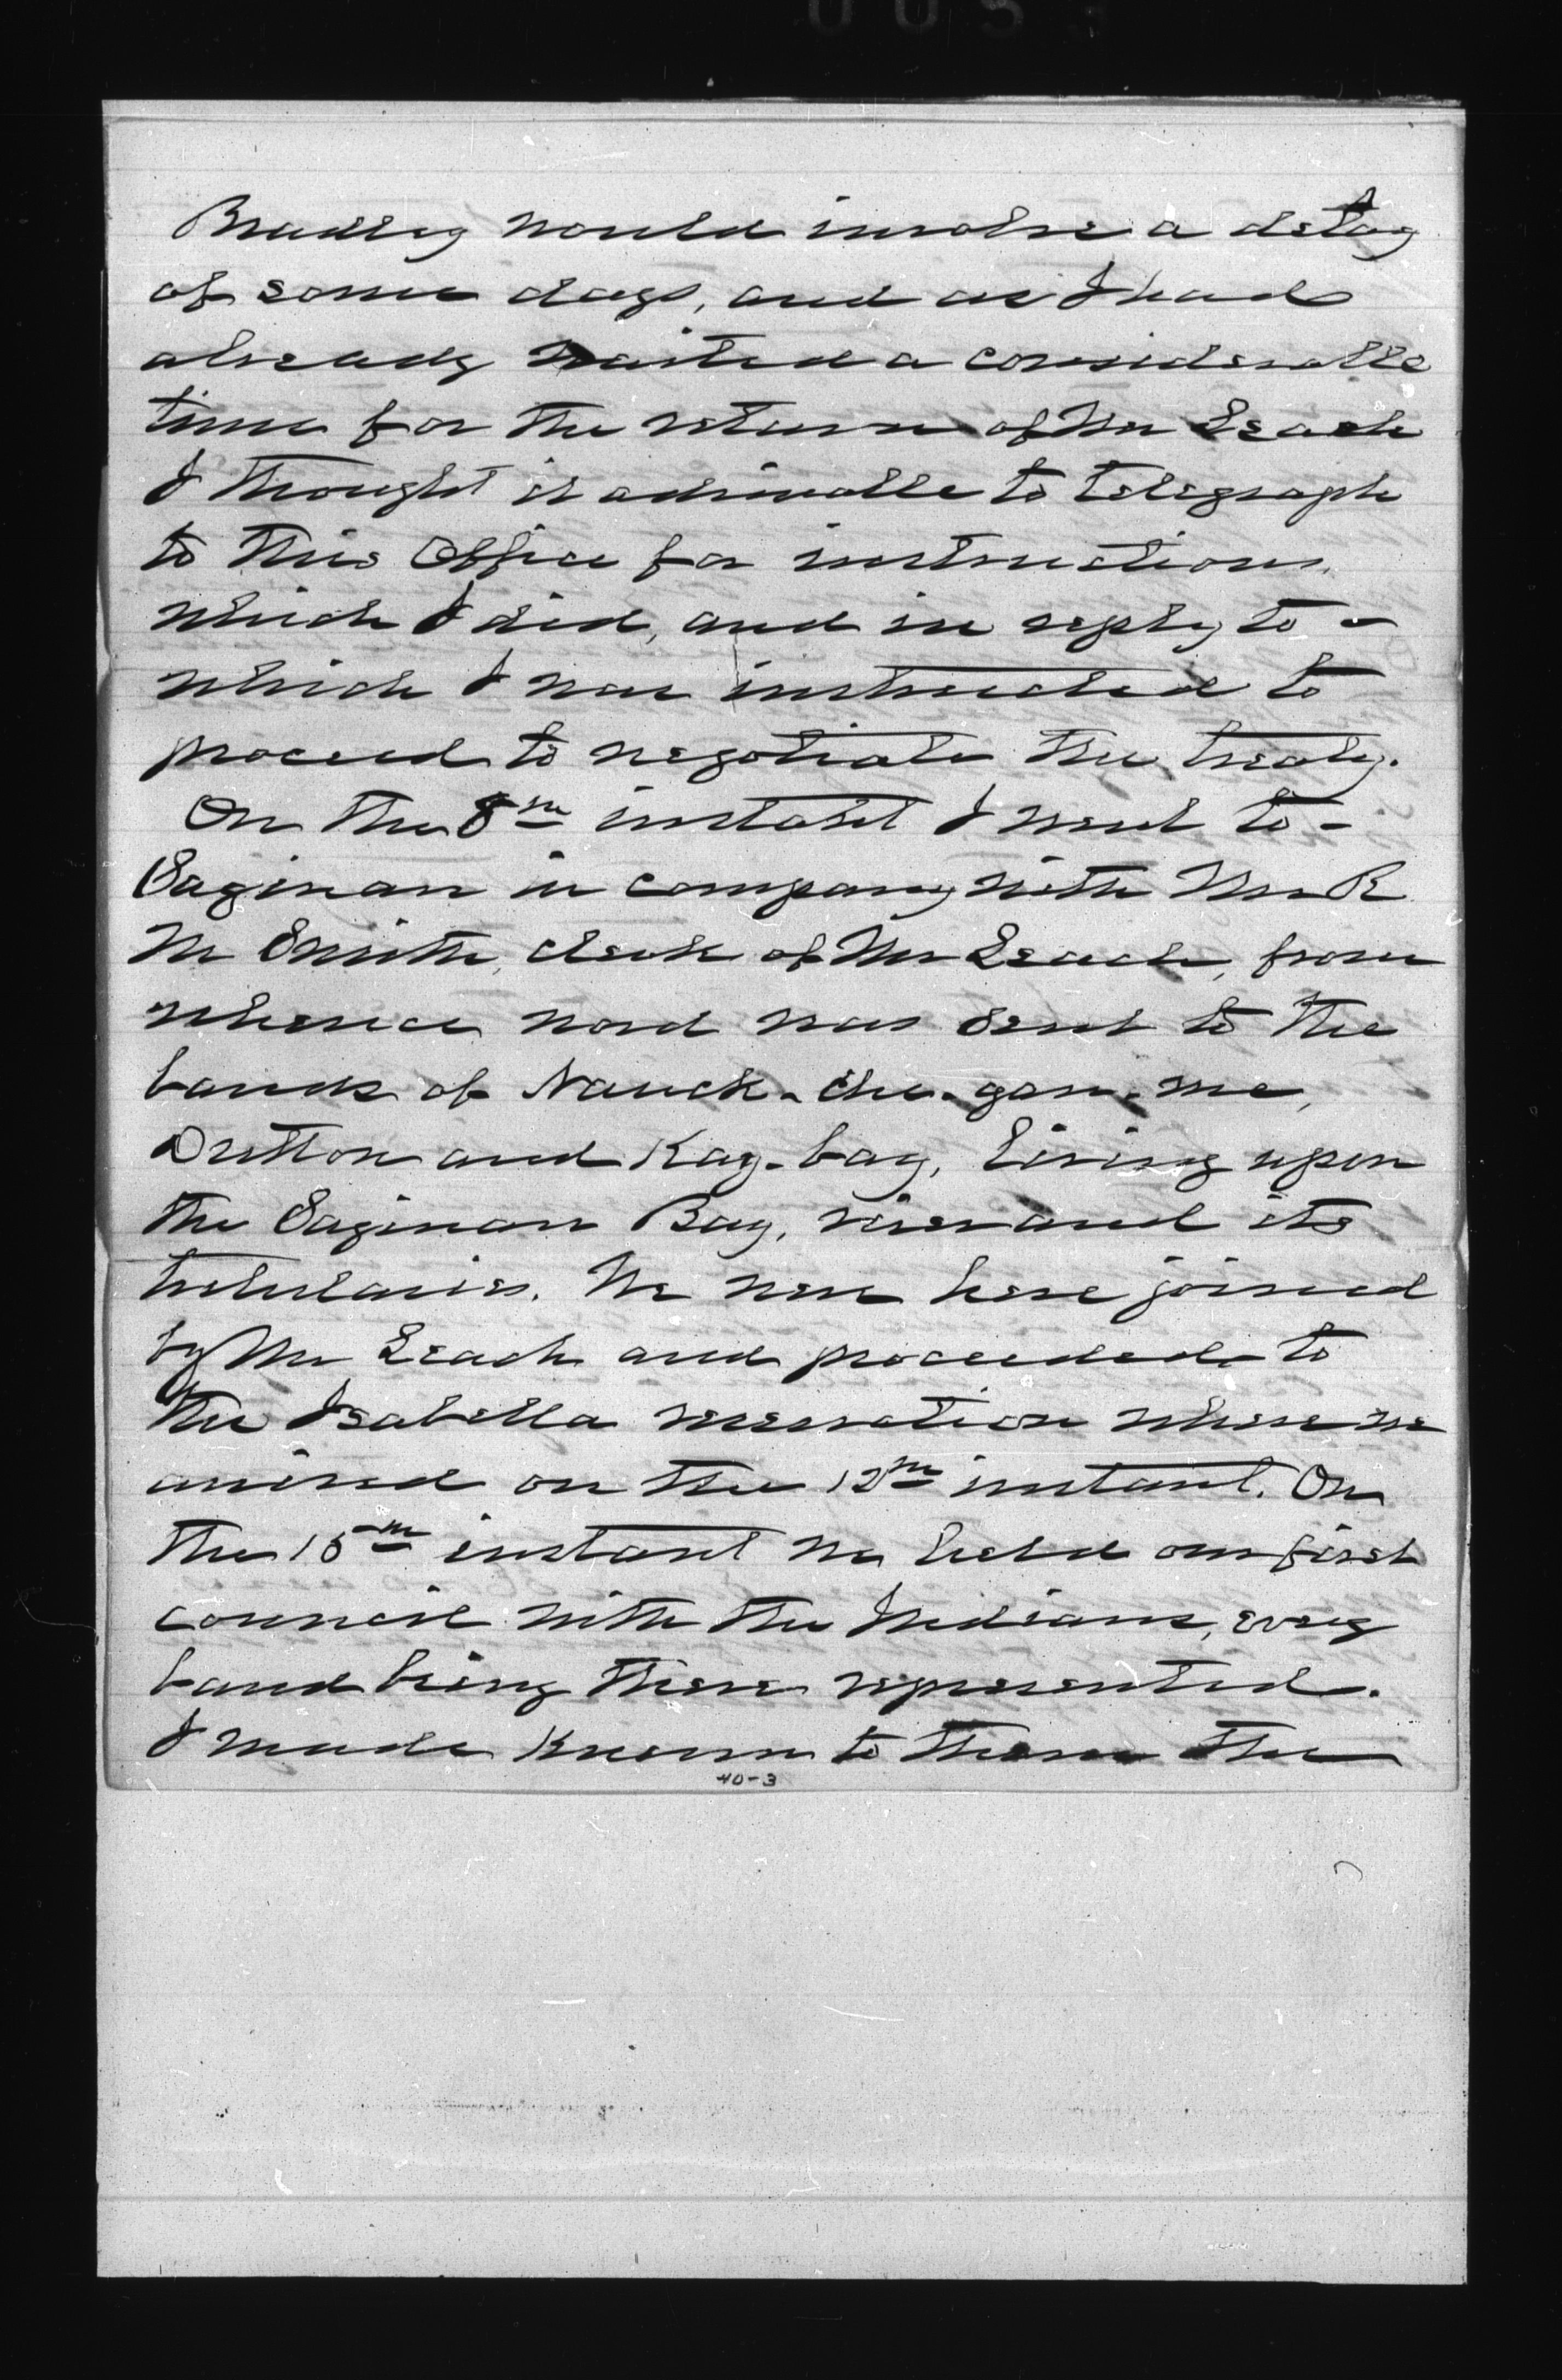 Bradley would involve a delay
of some days, and as I had
already waited a considerable
time for the return of Mr Leach
I thought it advisable to telegraph
to this Office for instructions,
which I did, and in reply to -
which I was instructed to
proceed to negotiate the treaty.
On the 8th instant I went to -
Saginaw in company with Mr R
M Smith, clerk of Mr Leach, from
whence word was sent to the
bands of Nauck-che-gaw-me,
Dutton and Kay-bay, living upon
the Saginaw Bay, river and its
tributaries. We were here joined
by Mr Leach and proceeded to
the Isabella reservation where we
arrived on the 12th instant. On
the 15th instant we held our first
council with the Indians, every
band being there represented.
I made known to them the
40-3